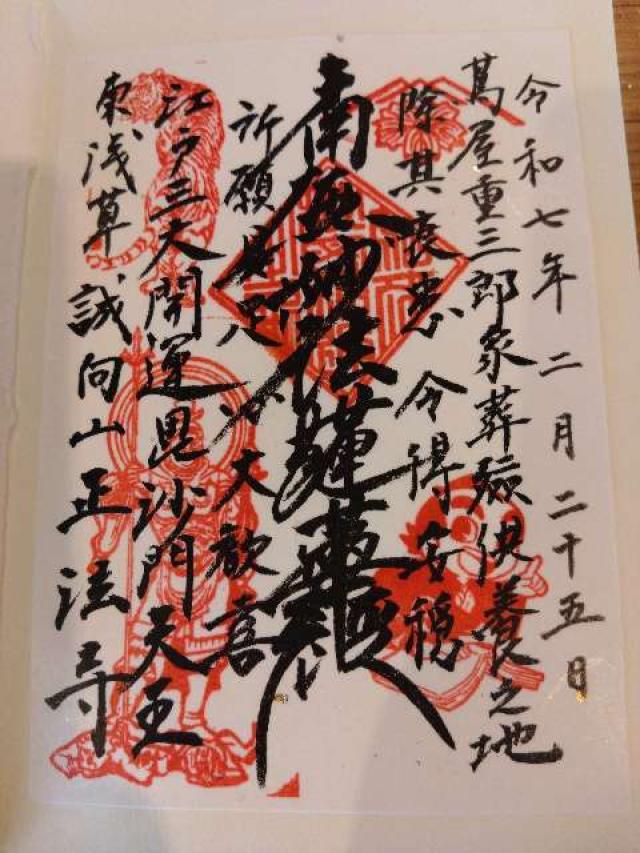 令和七年二月二十五日
蔦屋重三郎家葬殮供養之地
除其衰患 令得安穏
南無妙法蓮華経
祈願具足 心大歓喜
江戸三大開運毘沙門天王
東浅草 誠向山正法寺